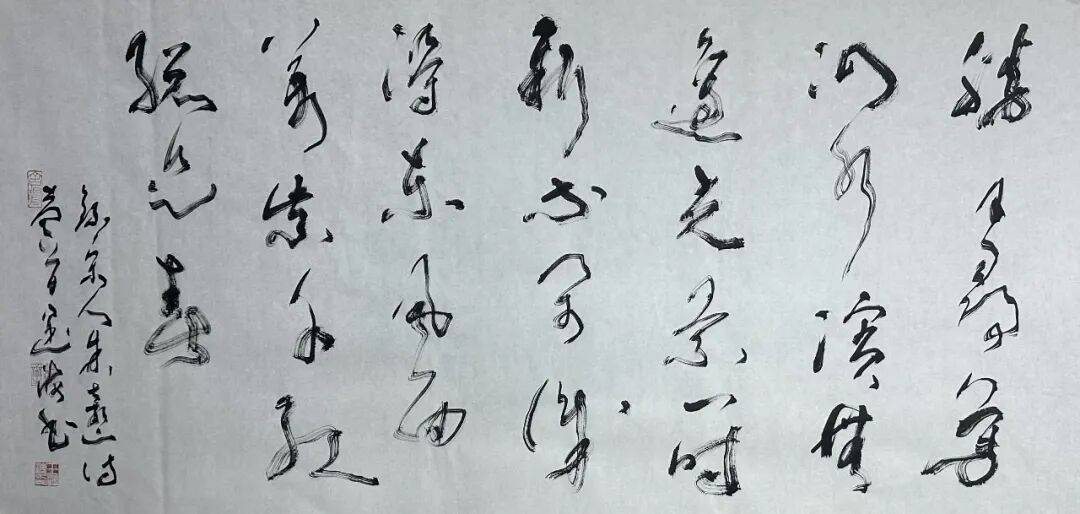 勝日尋芳
泗水濱無
邊光景一時
新等閒識
得東風面
萬紫千紅
總是春
錄宋人朱熹詩
海书